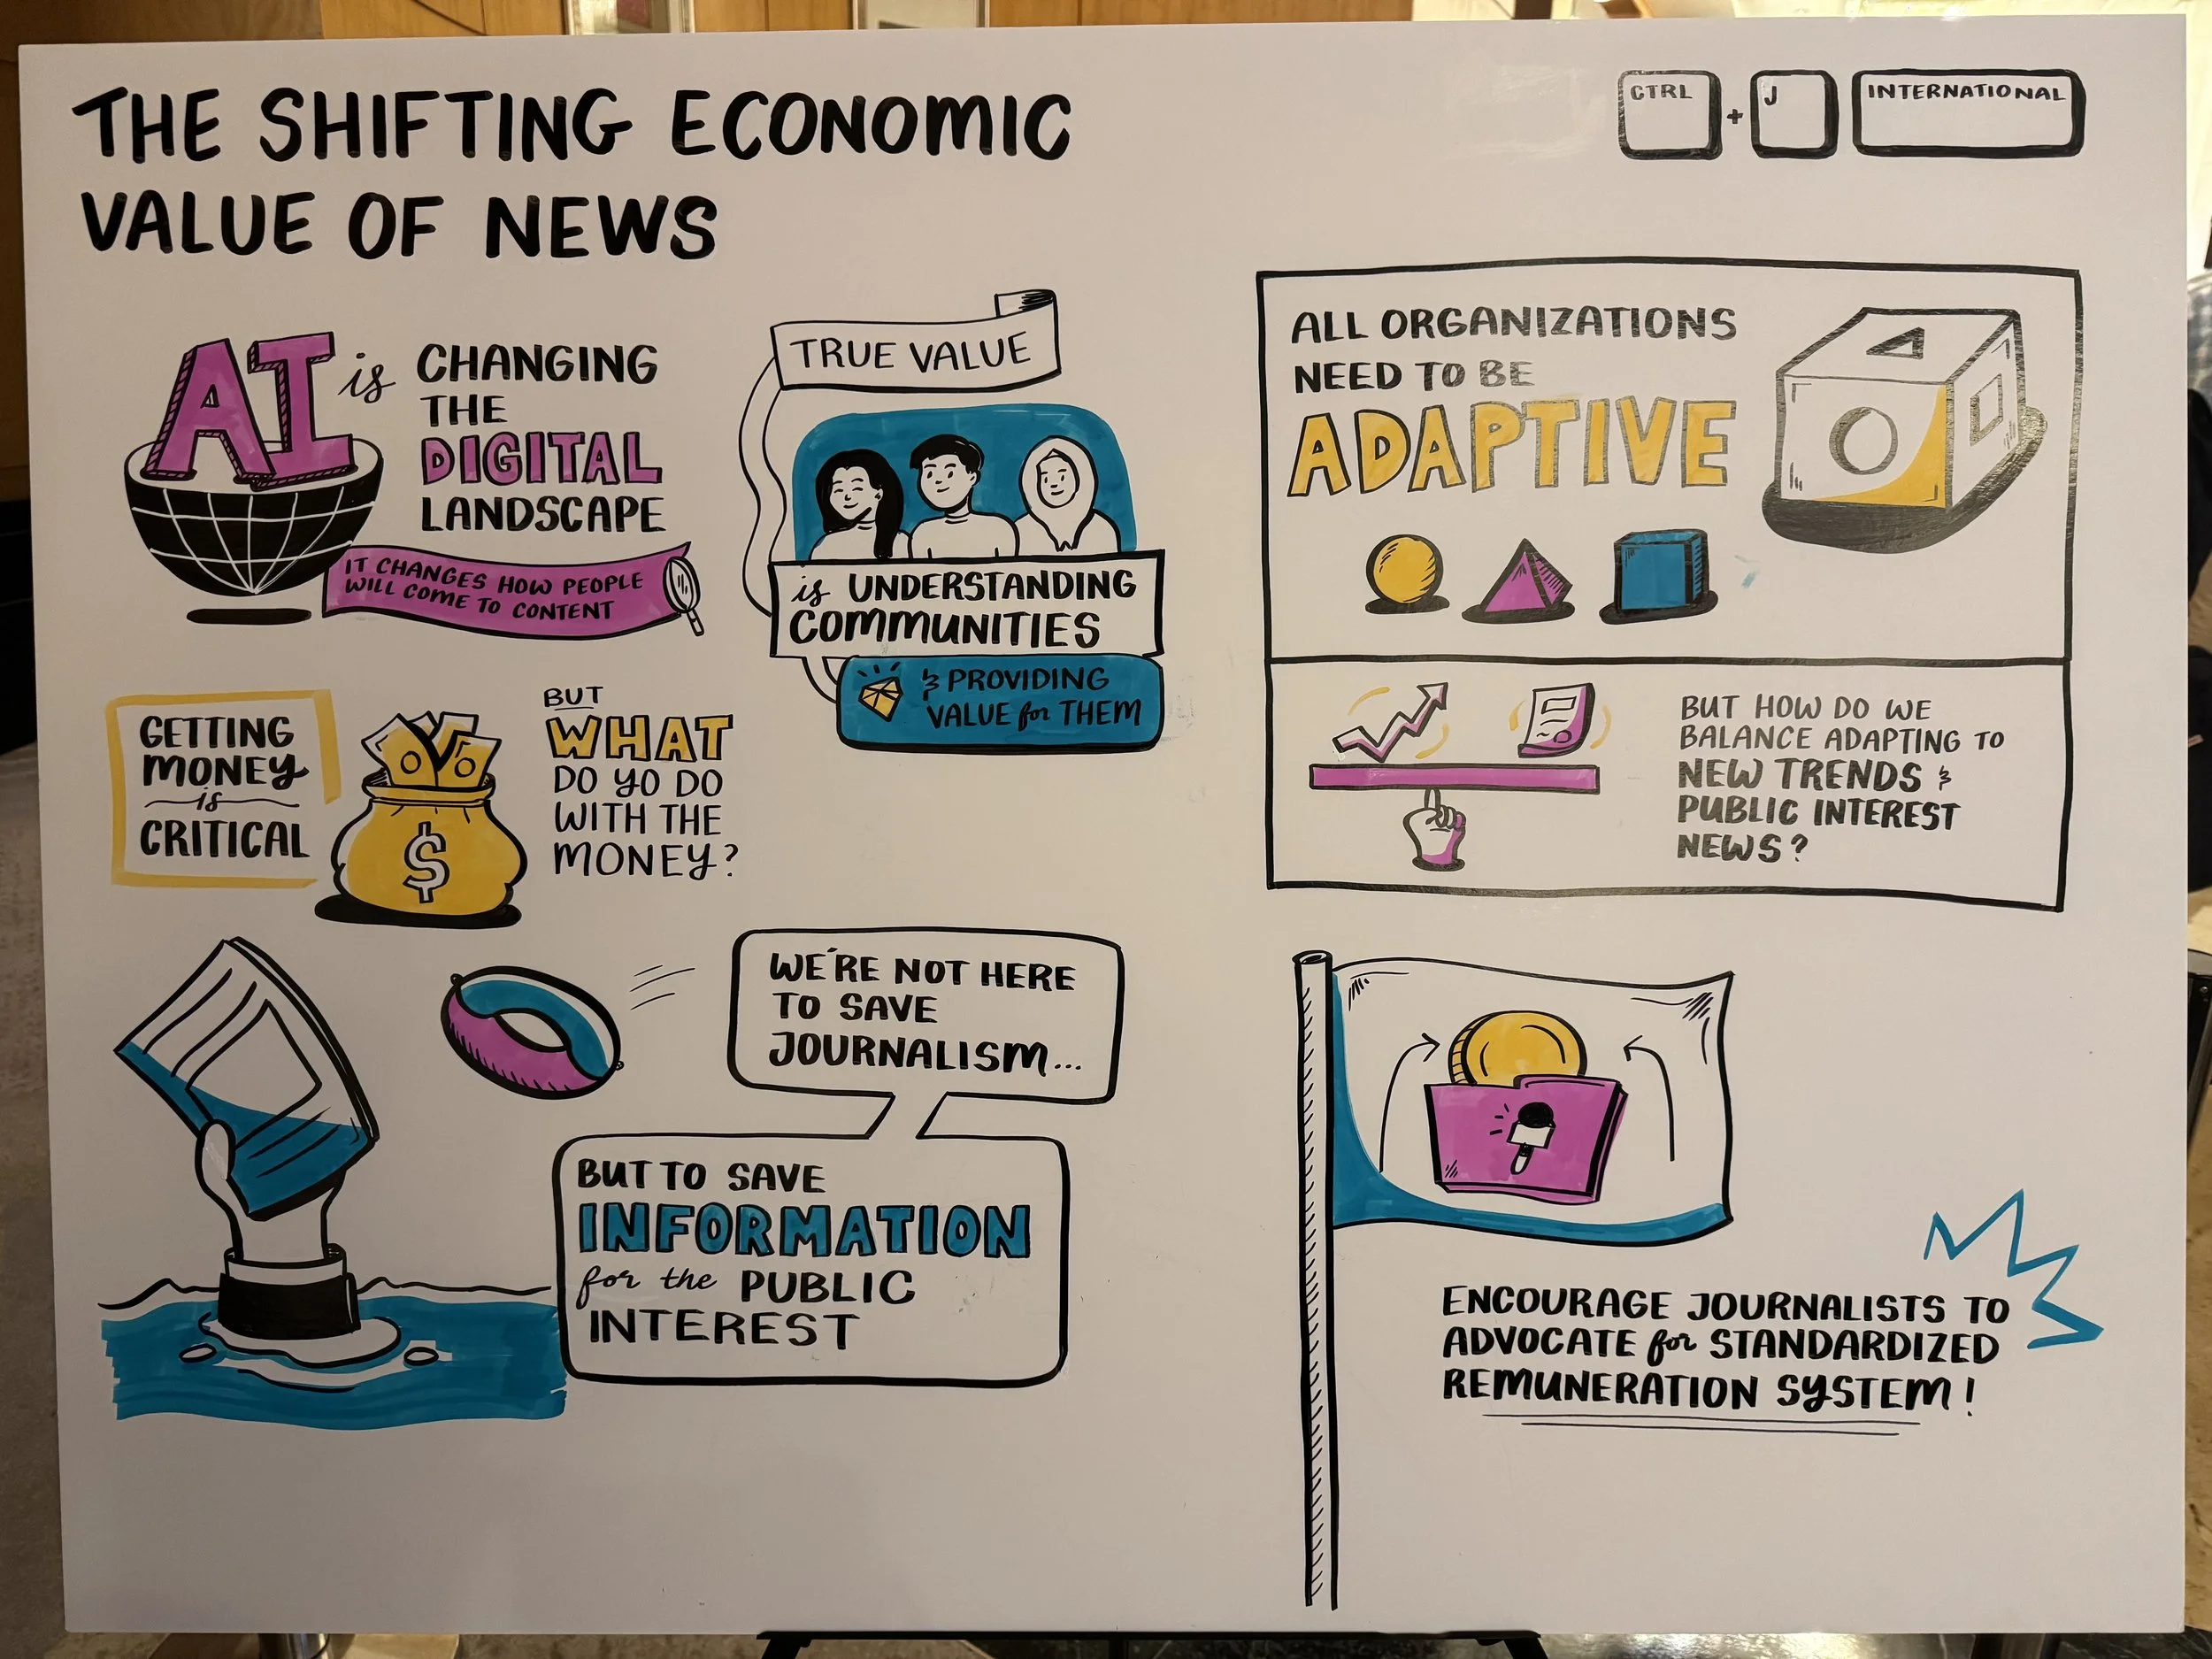 THE SHIFTING ECONOMIC
VALUE OF NEWS
CTRL + J INTERNATIONAL
AI is CHANGING
THE
DIGITAL
LANDSCAPE
IT CHANGES HOW PEOPLE
WILL COME TO CONTENT
TRUE VALUE
is UNDERSTANDING
COMMUNITIES
& PROVIDING
VALUE for THEM
GETTING
MONEY
is
CRITICAL
$
BUT
WHAT
DO YO DO
WITH THE
MONEY?
WE'RE NOT HERE
TO SAVE
JOURNALISM...
BUT TO SAVE
INFORMATION
for the PUBLIC
INTEREST
ALL ORGANIZATIONS
NEED TO BE
ADAPTIVE
BUT HOW DO WE
BALANCE ADAPTING TO
NEW TRENDS &
PUBLIC INTEREST
NEWS?
ENCOURAGE JOURNALISTS TO
ADVOCATE for STANDARDIZED
REMUNERATION SYSTEM!